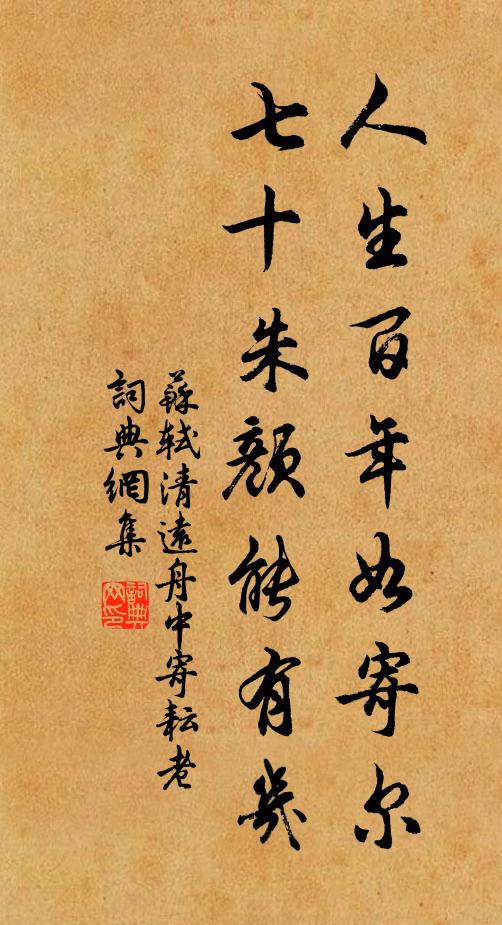 人生百年如寄尔
七十朱颜能有几
蘇軾清遠舟中寄耘老
詞典網集
詞典网印